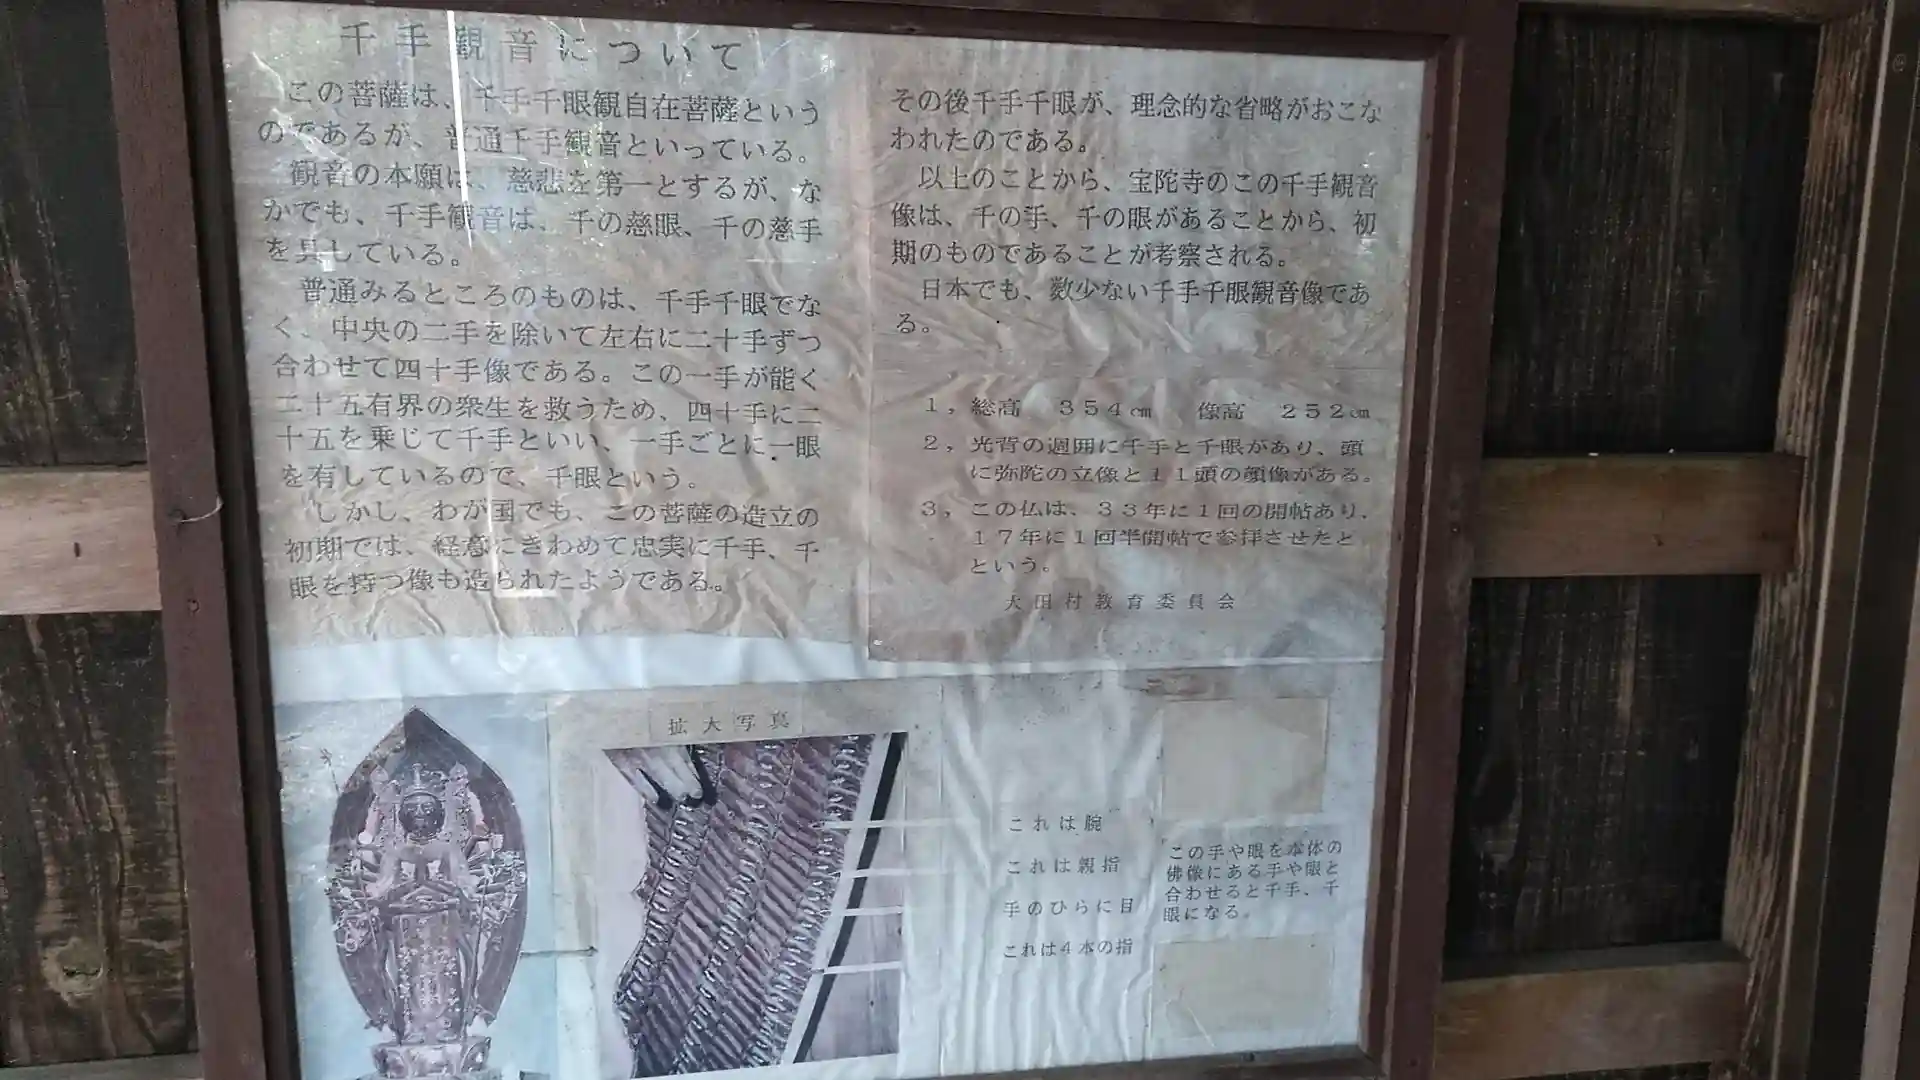 千手観音について
この菩薩は、千手千眼観自在菩薩という
のであるが、普通千手観音といっている。
観音の本願は、慈悲を第一とするが、な
かでも、千手観音は、千の慈眼、千の慈手
を具している。
普通みるところのものは、千手千眼でな
く、中央の二手を除いて左右に二十手ずつ
合わせて四十手像である。この一手が能く
二十五有界の衆生を救うため、四十手に二
十五を乗じて千手といい、一手ごとに一眼
を有しているので、千眼という。
しかし、わが国でも、この菩薩の造立の
初期では、経意にきわめて忠実に千手、千
眼を持つ像も造られたようである。
その後千手千眼が、理念的な省略がおこな
われたのである。
以上のことから、宝陀寺のこの千手観音
像は、千の手、千の眼があることから、初
期のものであることが考察される。
日本でも、数少ない千手千眼観音像であ
る。
1，総高 354㎝ 像高 252㎝
2，光背の週囲に千手と千眼があり、頭
に弥陀の立像と11頭の顔像がある。
3，この仏は、33年に1回の開帖あり、
17年に1回半開帖で参拝させたと
という。
大田村教育委員会
拡大写真
これは腕
これは親指
手のひらに目
これは4本の指
この手や眼を本体の
佛像にある手や眼と
合わせると千手、千
眼になる。